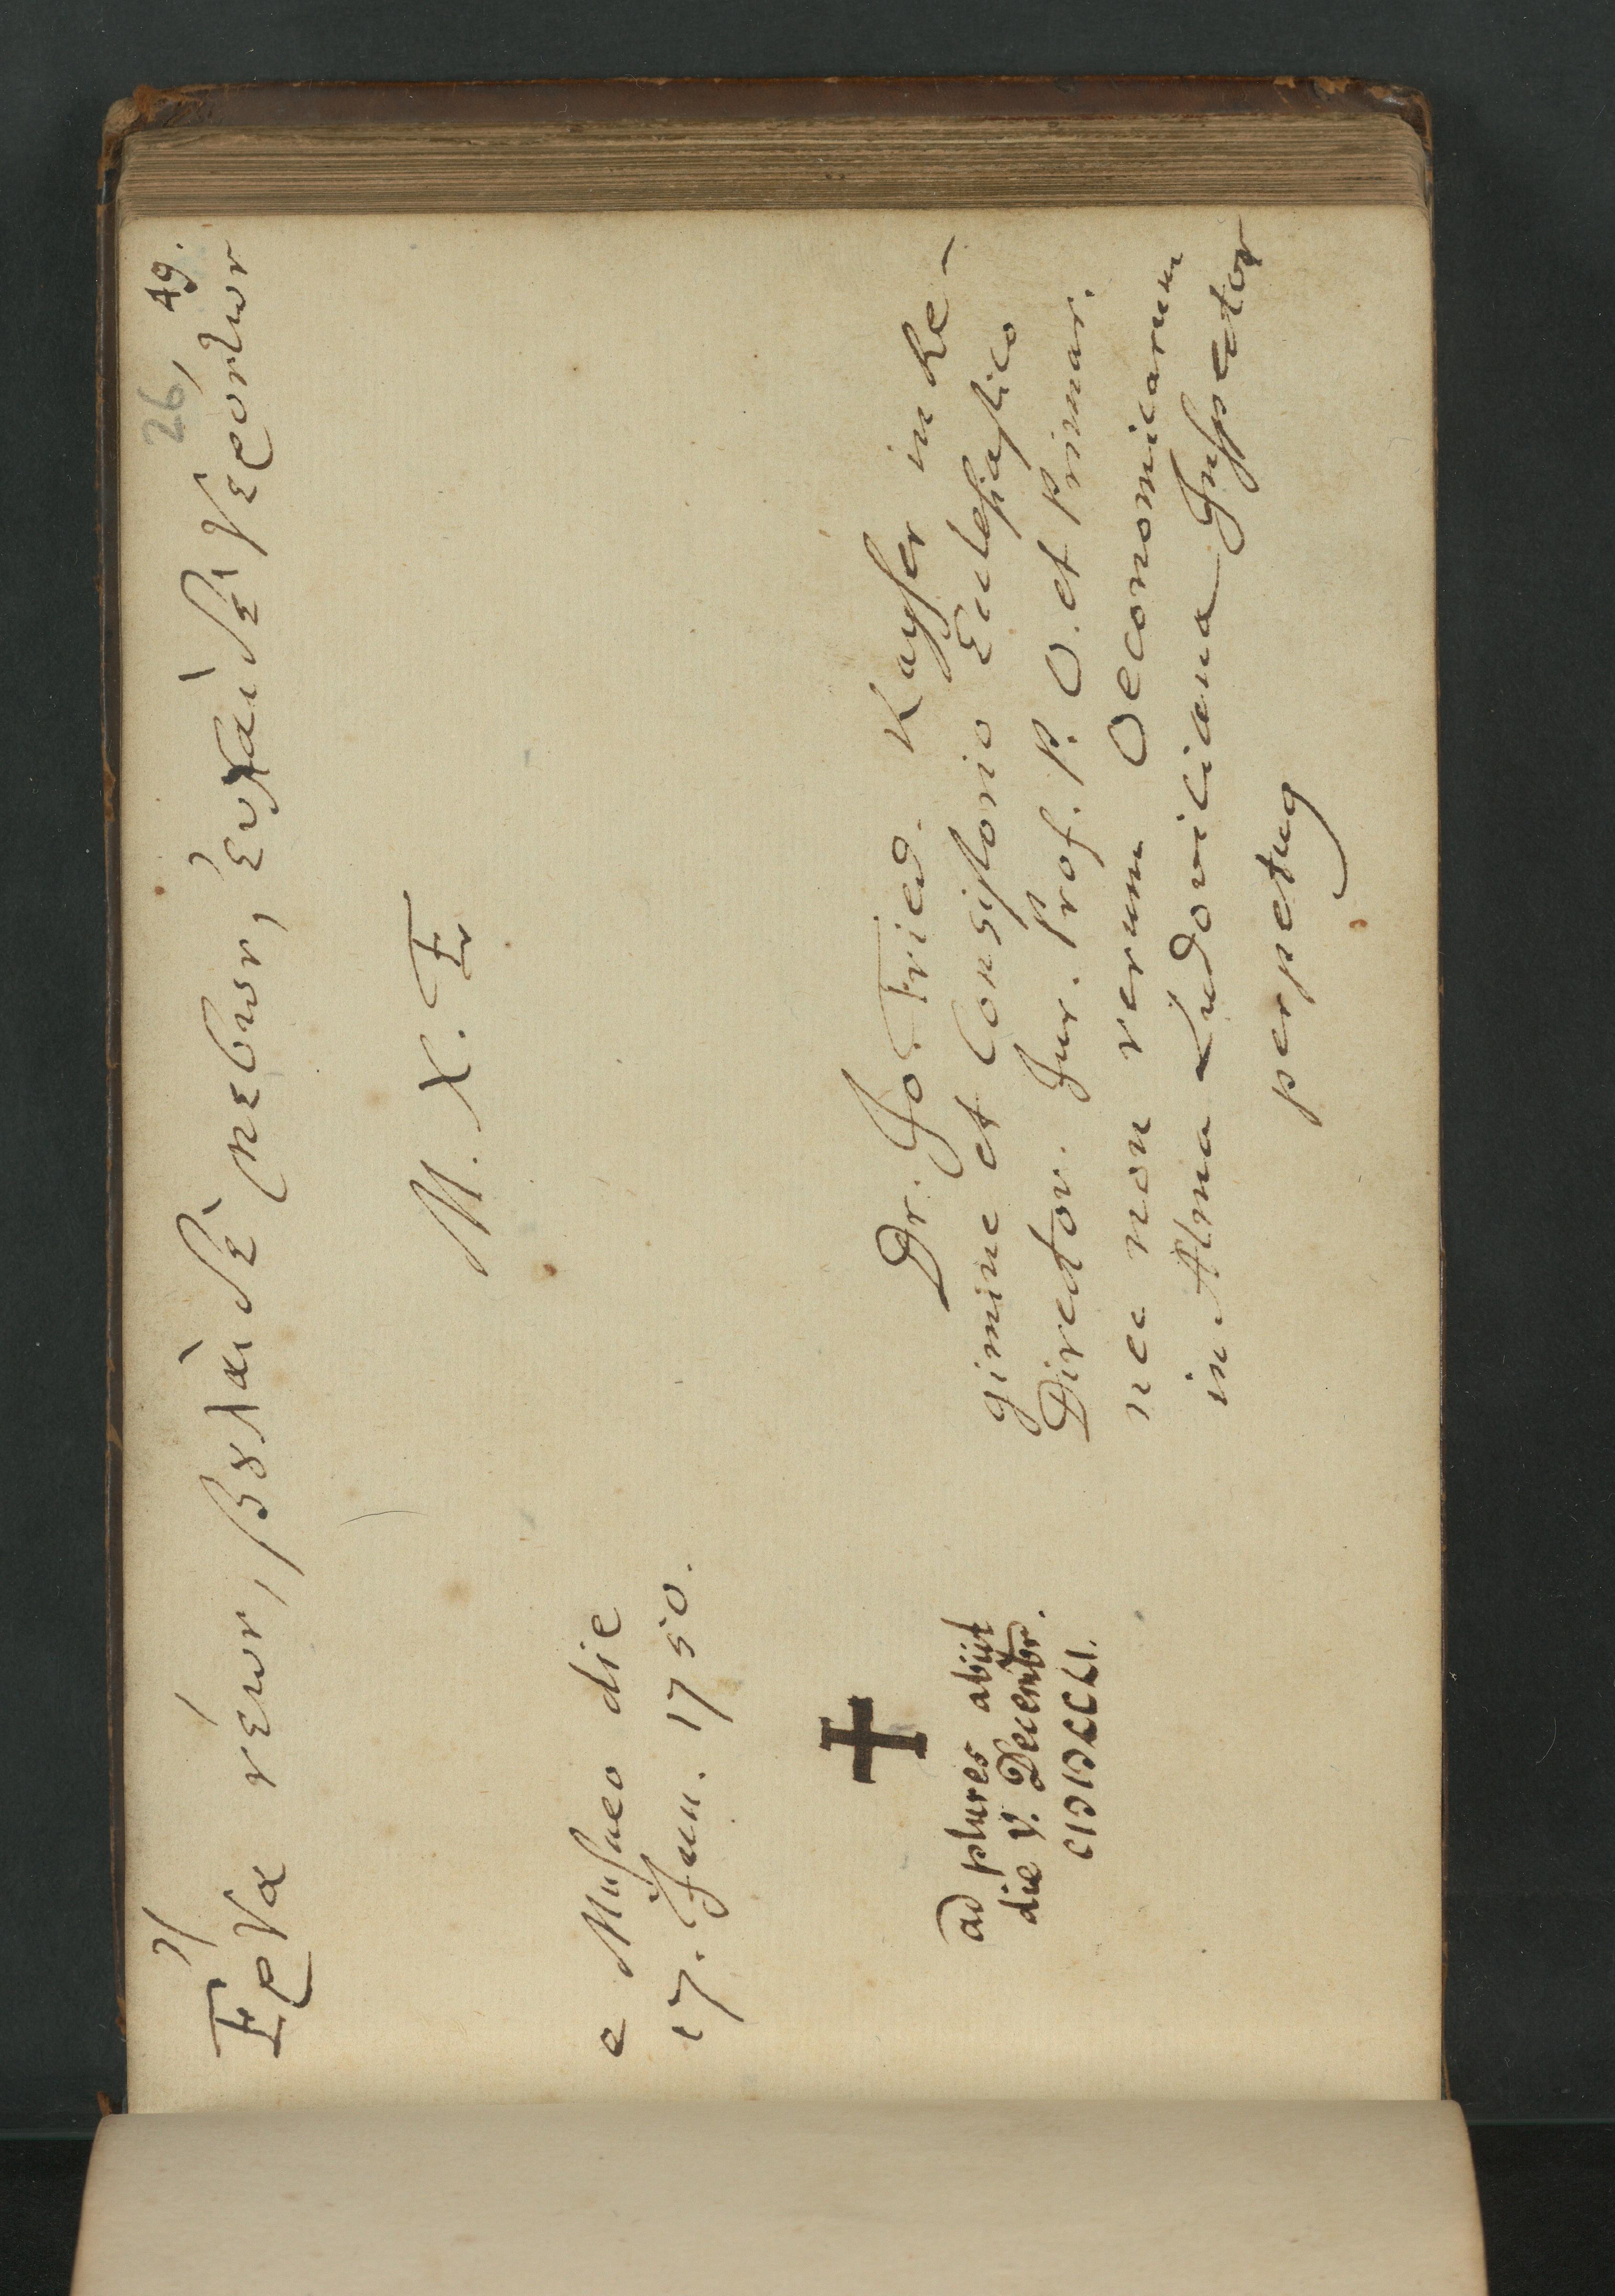 26, 49.
Ἔργα νέων, βȣλαὶ δὲ μέσων, ἐυχαὶ δὲ γερόντων
M. X. F
e Musaeo die
17. Jan. 1750.
Dr. Jo. Fried. Kayser in Re-
gimine et Consistorio Ecclesiastico
Director. Jur. Prof. P. O. et Primar.
nec non rerum Oeconomicarum
in Alma Ludoviciana Inspector
perpetuus
✝
ad plures abiit
die V. Decembr.
CIƆIƆCCLI.